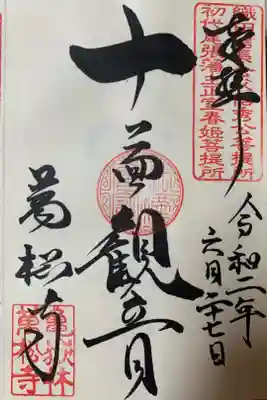 奉拝
織田信長公父信秀公菩提所
初代尾張藩主正室春姫菩提所
令和二年
六月二十七日
十一面観世音
萬松寺
亀嶽林
萬松寺